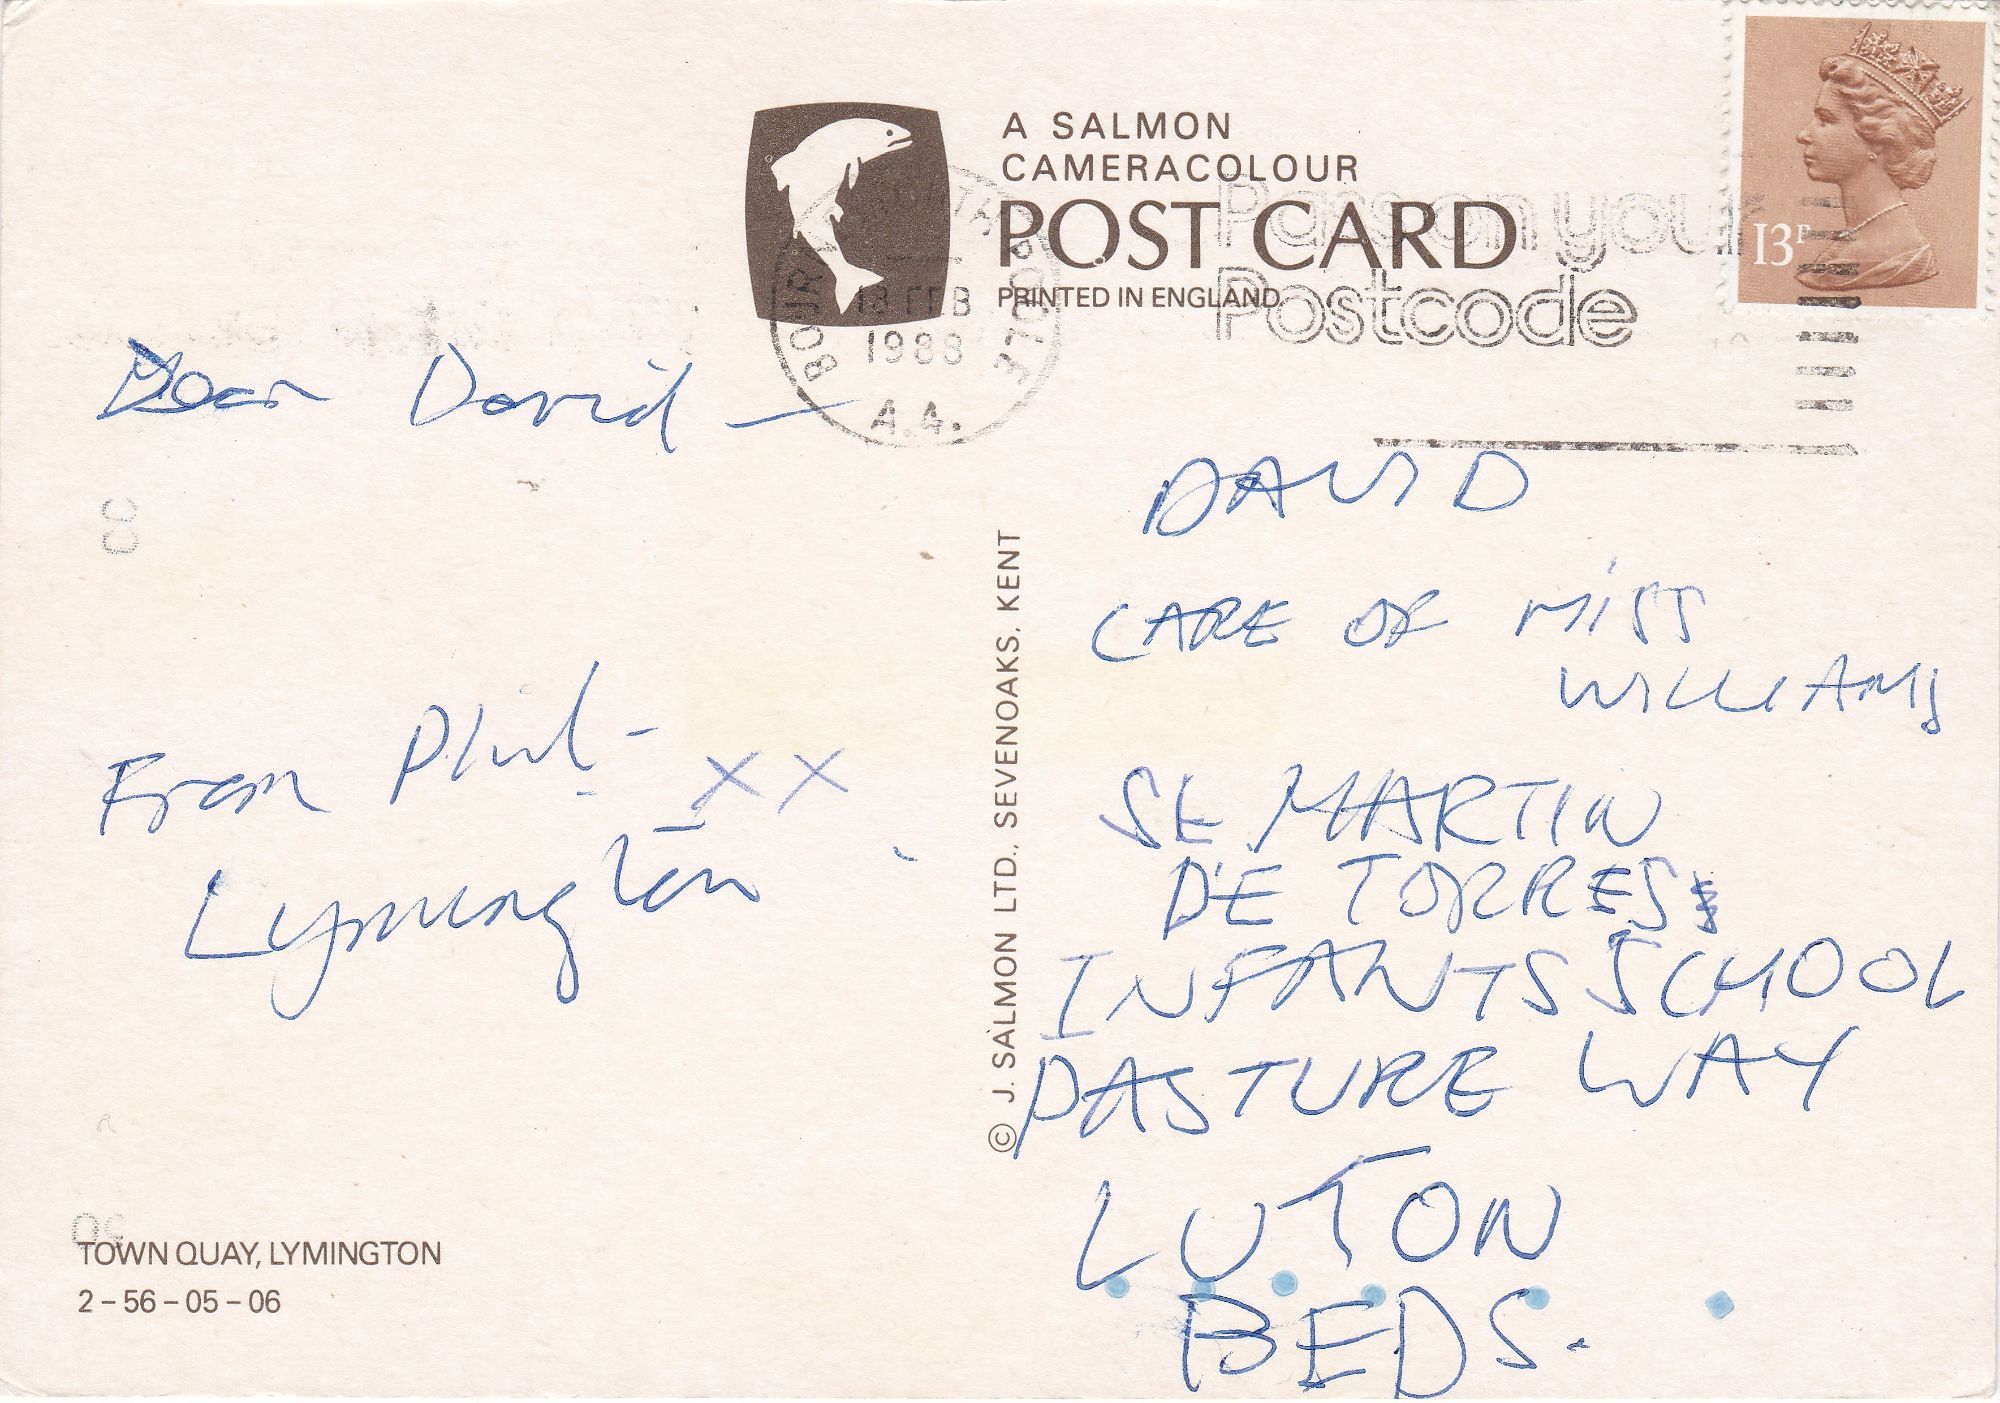 A SALMON
CAMERACOLOUR
POST CARD
PRINTED IN ENGLAND
Pass on your
Postcode
13P
BOURNEMOUTH POOLE
18 FEB
1988
A.A.
Dear David –
From Phil –
xx
Lymington
DAVID
CARE OF MISS
WILLIAMS
St MARTIN
DE TORRES
INFANTS SCHOOL
PASTURE WAY
LUTON
BEDS.
© J. SALMON LTD., SEVENOAKS, KENT
TOWN QUAY, LYMINGTON
2 – 56 – 05 – 06